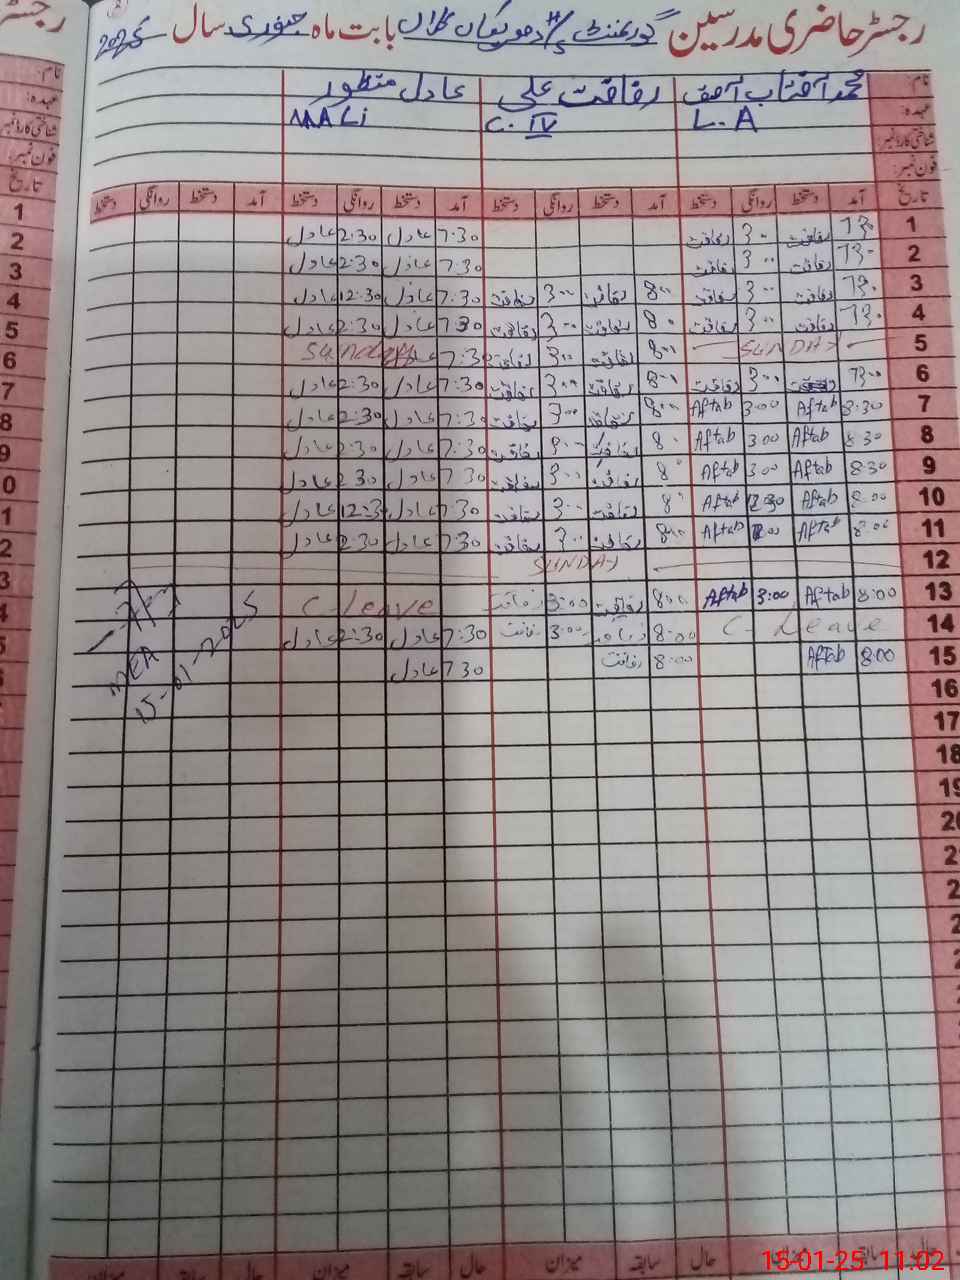 رجسٹر حاضری مدرسین گورنمنٹ H/S کلاں بابت ماہ جنوری سال 2025
نام: محمد آفتاب آصف رفاقت علی عادل منظور
عہدہ: L.A C.IV MALi
شناختی کارڈ نمبر
فون نمبر:
تاریخ آمد دستخط روانگی دستخط آمد دستخط روانگی دستخط آمد دستخط روانگی دستخط آمد دستخط روانگی دستخط
1 7:30 رفاقت 3:00 رفاقت 7:30 عادل 2:30 عادل
2 7:30 رفاقت 3:00 رفاقت 7:30 عادل 2:30 عادل
3 7:30 رفاقت 3:00 رفاقت 8:00 رفاقت 3:00 رفاقت 7:30 عادل 12:30 عادل
4 7:30 رفاقت 3:00 رفاقت 8:00 رفاقت 3:00 رفاقت 7:30 عادل 2:30 عادل
5 SUNDAY 8:00 رفاقت 3:00 رفاقت 7:30 Sunday
6 7:30 رفاقت 3:00 رفاقت 8:00 رفاقت 3:00 رفاقت 7:30 عادل 2:30 عادل
7 8:30 Aftab 3:00 Aftab 8:00 رفاقت 3:00 رفاقت 7:30 عادل 2:30 عادل
8 8:30 Aftab 3:00 Aftab 8:00 رفاقت 3:00 رفاقت 7:30 عادل 2:30 عادل
9 8:30 Aftab 3:00 Aftab 8:00 رفاقت 3:00 رفاقت 7:30 عادل 2:30 عادل
10 8:00 Aftab 12:30 Aftab 8:00 رفاقت 3:00 رفاقت 7:30 عادل 12:30 عادل
11 8:00 Aftab Aftab 8:00 رفاقت 3:00 رفاقت 7:30 عادل 2:30 عادل
12 SUNDAY
13 8:00 Aftab 3:00 Aftab 8:00 رفاقت 3:00 رفاقت C-Leave
14 C- Leave 8:00 رفاقت 3:00 رفاقت 7:30 عادل 2:30 عادل
15 8:00 Aftab 8:00 رفاقت 7:30 عادل
MEA
15-01-2025
16
17
18
19
20
حال سابقہ میزان حال سابقہ میزان حال سابقہ میزان
15-01-25 11:02